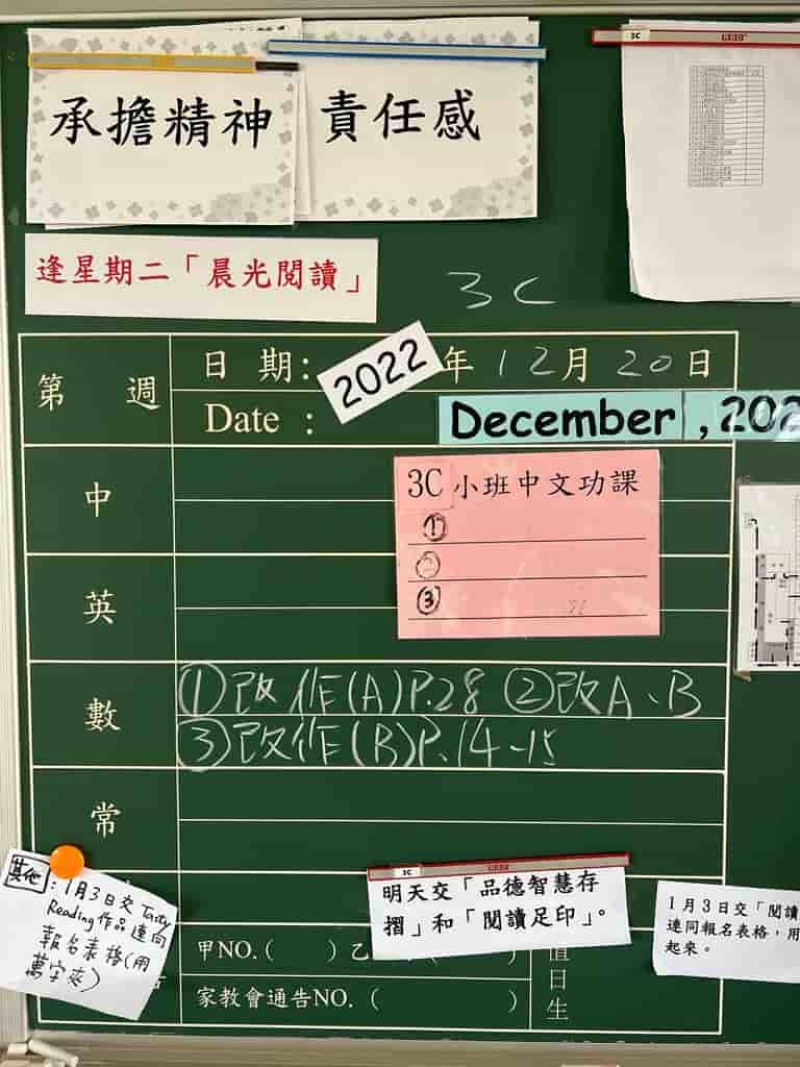 承擔精神
責任感
3C
逢星期二「晨光閱讀」
3C
第 週
日 期: 2022年12月20日
Date : December , 202
中
3C 小班中文功課
①
②
③
英
數
①改作(A)P.28 ②改A、B
③改作(B)P.14-15
常
其他:1月3日交Tasty
Reading作品連同
報名表格(用
萬字夾)
3C
明天交「品德智慧存
摺」和「閱讀足印」。
1月3日交「閱讀
連同報名表格,用
起來。
甲NO.( ) 乙
家教會通告NO. ( )
值日生